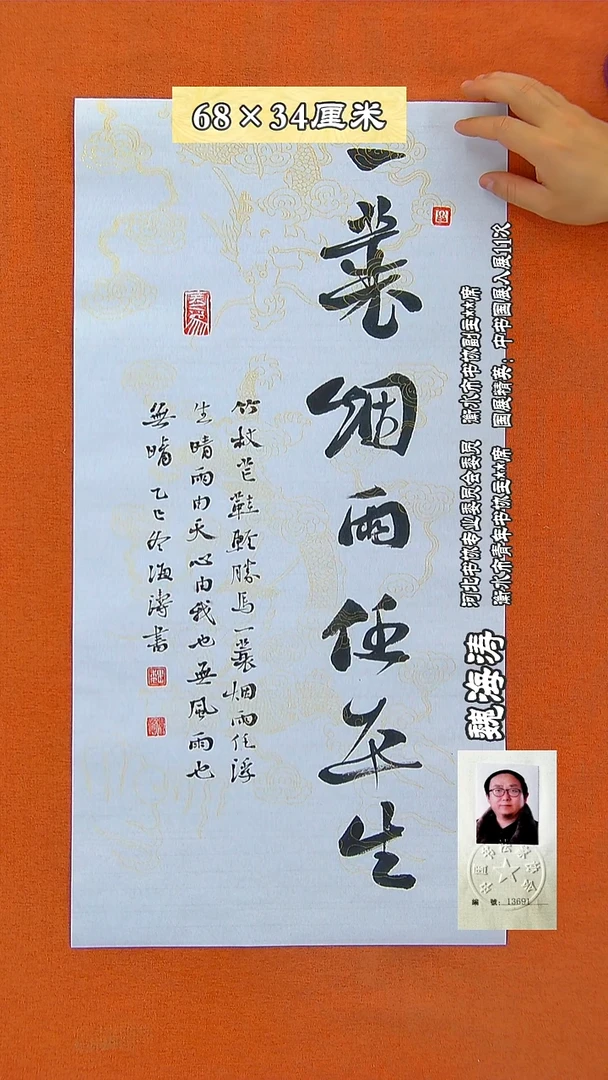 68×34厘米
一蓑烟雨任平生
竹杖芒鞋轻胜馬一蓑烟雨任浮
生晴雨由天心由我也無風雨也
無晴 乙巳冬海濤書
国展精英：中书国展入展11次
衡水市书协副主**席
衡水市青年书协主**席
河北书协专业委员会委员
魏海涛
編 號：13691